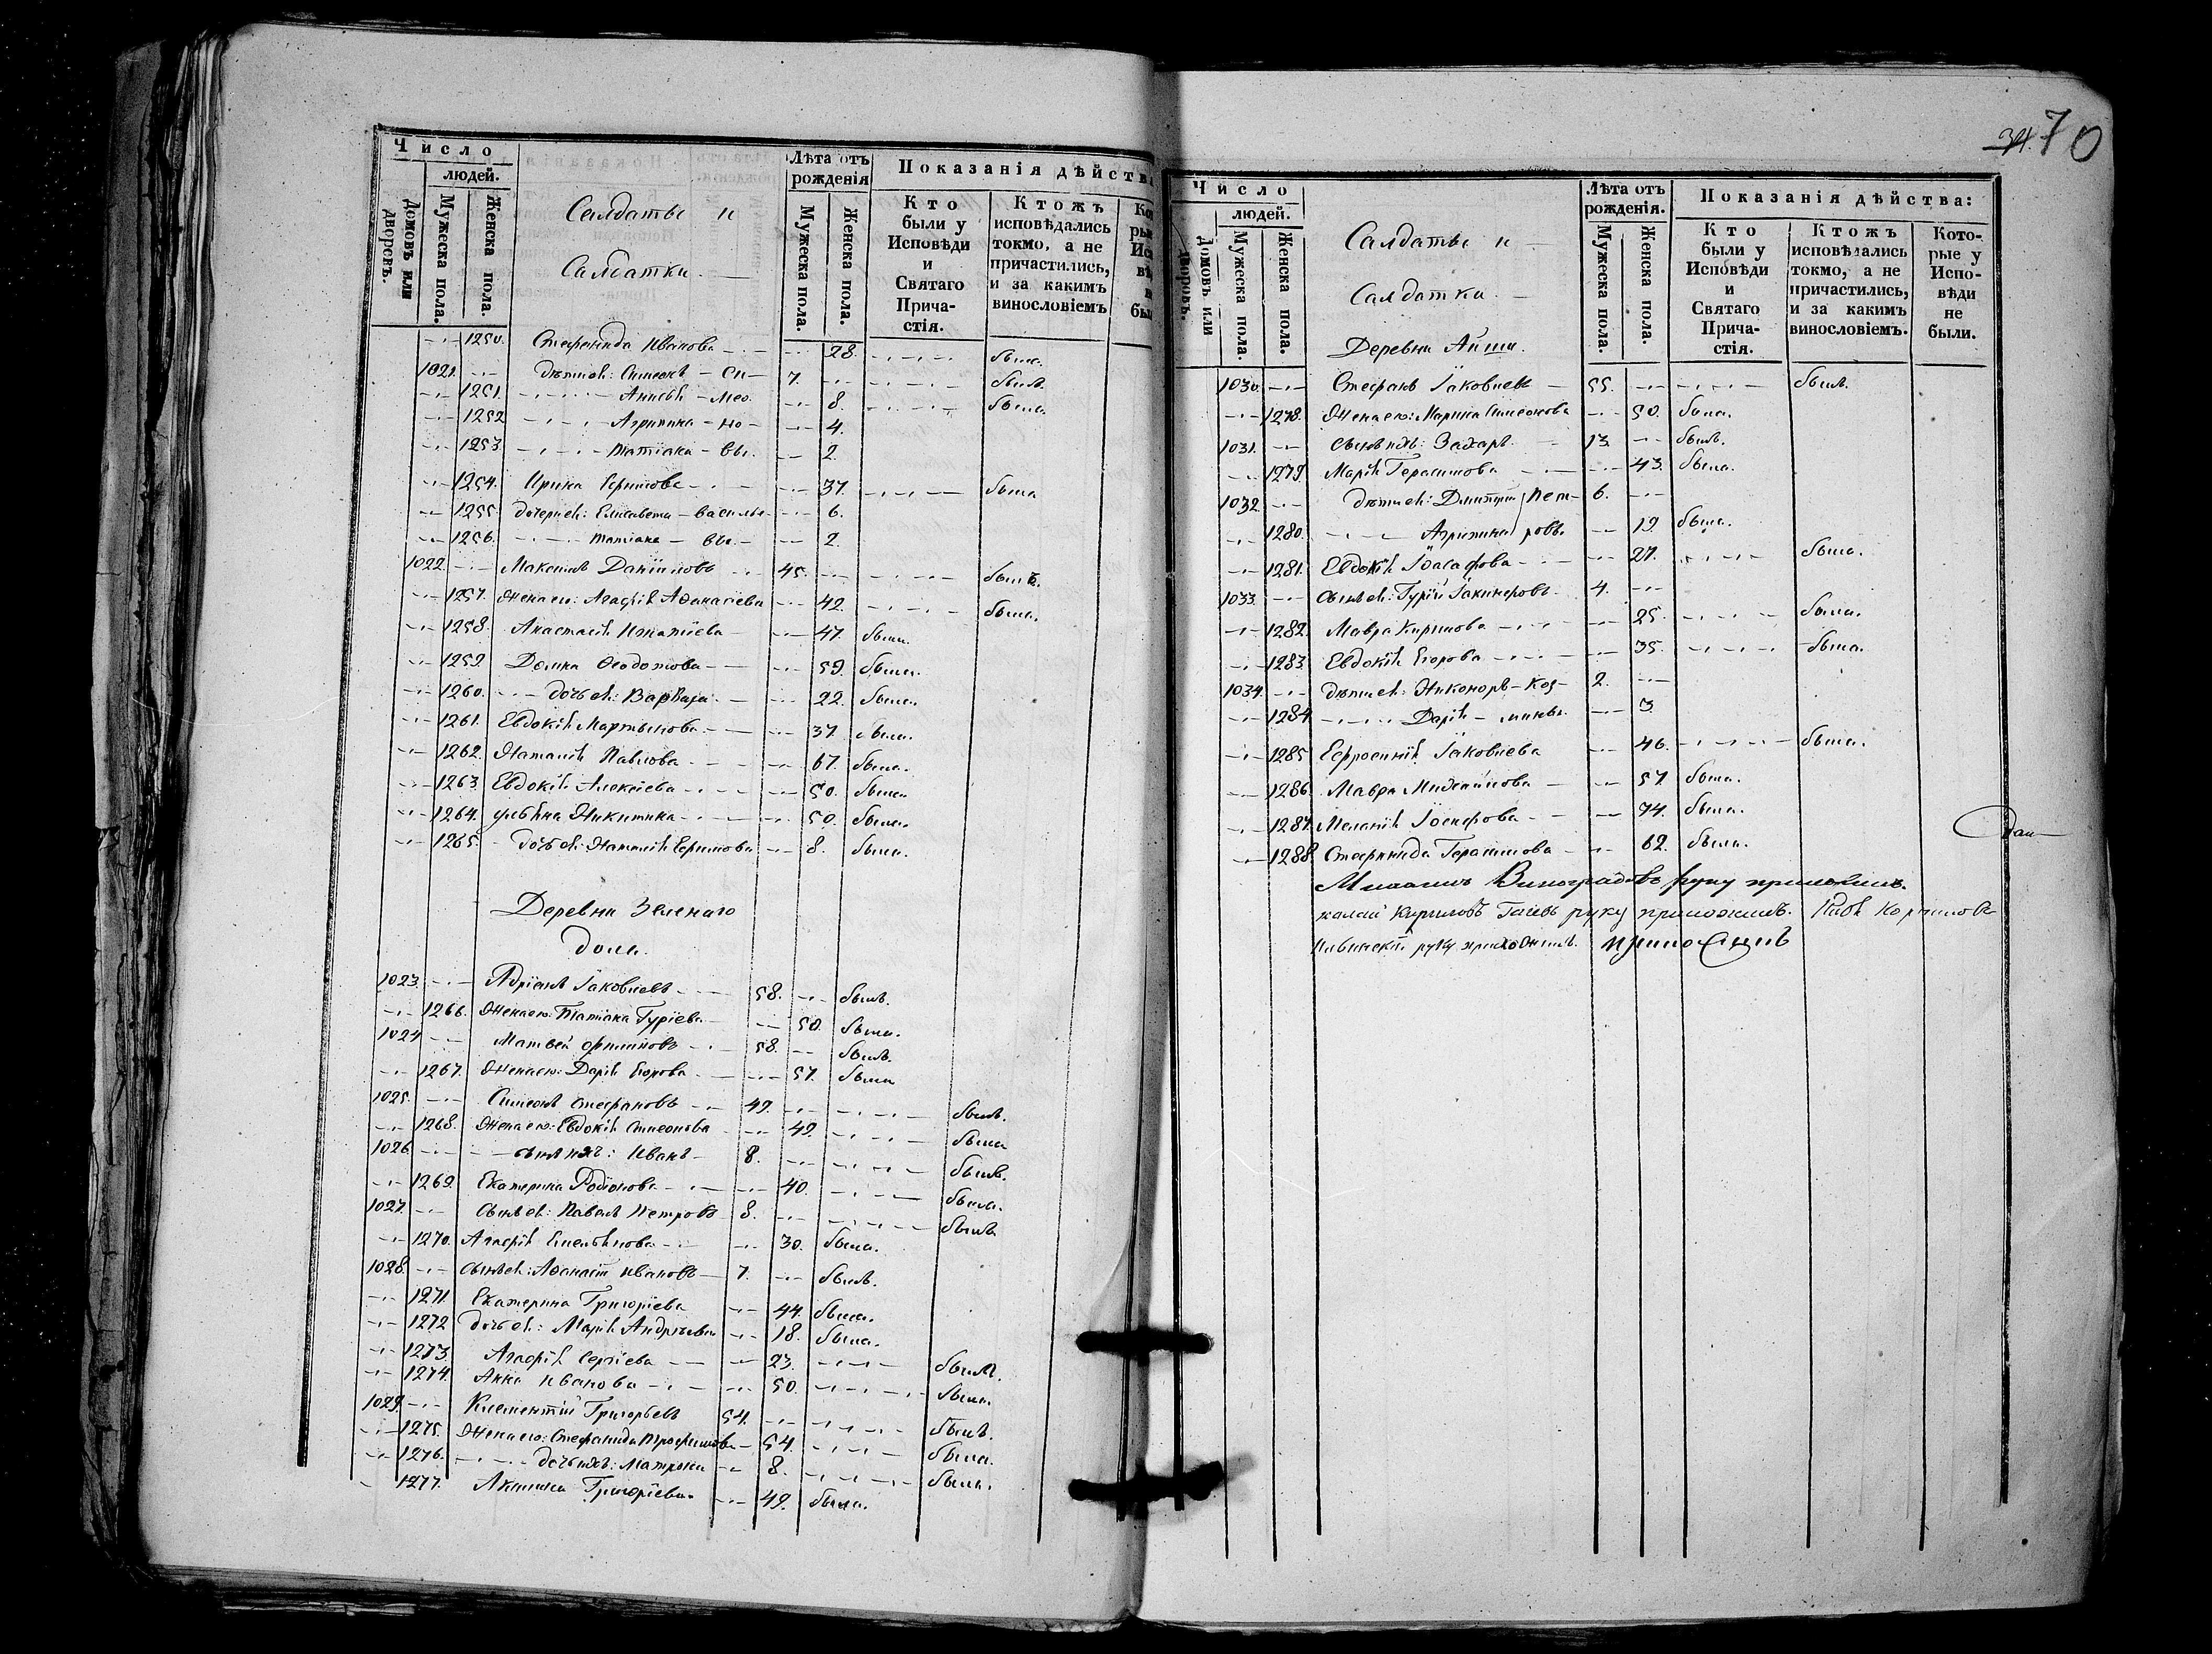 Число
людей.
Домовъ или дворовъ.
Мужеска пола.
Женска пола.
Салдаты и
Салдатки.
Лѣта отъ рожденія
Мужеска пола.
Женска пола.
Показанія дѣйства
Кто были у Исповѣди и Святаго Прича-стія.
Ктожъ исповѣдались токмо, а не причастились, и за какимъ винословіемъ
1250. Стефанида Иванова 28. была.
1021. дѣти ея: Симеонъ – Си– 7. былъ.
1251. Анисія – мео. 8. была.
1252 Агрипина – но– 4.
1253 Татіана – вы. 2.
1254. Ирина Ефимова 37. была
1255 дочери ея: Елисавета – Василье– 6.
1256. Татіана – вы. 2.
1022. Максимъ Даніиловъ 45. былъ.
1257. Жена его: Агафія Афанасіева 42. была.
1258. Анастасія Игнатіева 47. была.
1259. Домна Федотова 59. была.
1260. дочь ея: Варвара 22. была.
1261. Евдокія Мартынова 37. была.
1262. Наталія Павлова 67. была.
1263. Евдокія Алексіева 50. была.
1264. Улькна Никитина 50. была.
1265. дочь ея: Наталія Ефимова 8. была.
Деревни Зеленаго
дола.
1023. Адріанъ Іаковлевъ 58. былъ.
1266. Жена его: Татіана Гуріева 50. была.
1024 Матвей 58. былъ.
1267. Жена его: Дарія Егорова 57. была
1025. Симеонъ Стефановъ 49. былъ.
1268. Жена его: Евдокія Симеонова 49. была
1026 сынъ ихъ: Иванъ 8. былъ.
1269. Екатерина Родіонова 40. была.
1027. Сынъ ея: Павелъ Петровъ 8. былъ
1270. Агафія Емельянова 30. была.
1028. Сынъ ея: Афанасій Ивановъ 7. былъ.
1271 Екатерина Григоріева 44. была.
1272 Дочь ея: Марія Андреева 18. была.
1273. Агафія Сергіева 23. была.
1274. Анна Иванова 50. была.
1029. Клементій Григорьевъ 54. былъ.
1275. Жена его: Стефанида Трофимова 54. была.
1276. дочь ихъ: Матрона 8. была.
1277. Акилина Григоріева. 49. была.
70
Число
людей.
Домовъ или дворовъ.
Мужеска пола.
Женска пола.
Салдаты и
Салдатки.
Лѣта отъ рожденія.
Мужеска пола.
Женска пола.
Показанія дѣйства:
Кто были у Исповѣди и Святаго Прича-стія.
Ктожъ исповѣдались токмо, а не причастились, и за какимъ винословіемъ.
Кото-рые у Испо-вѣди не были.
Деревни Айши.
1030. Стефанъ Іаковлевъ 55. былъ.
1278. Жена его: Марина Симеонова 50. была.
1031. Сынъ ихъ: Захаръ 13. былъ.
1279. Марія Герасимова 43. была.
1032. дѣти ея: Дмитрій Пет– 6.
1280. Агрипина ровы 19 была.
1281. Евдокія Іоасафова 27. была.
1033. Сынъ ея: Гурій Іакинфовъ 4.
1282. Мавра Кирилова 25. была.
1283. Евдокія Егорова 35. была.
1034. дѣти ея: Никоноръ – Коз– 2.
1284. Дарія – мины. 3.
1285 Ефросинія Іаковлева 46. была.
1286. Мавра Михайлова 57 была.
1287. Меланія Іосифова 74. была.
1288. Стефанида Герасимова 62. была.
Виноградовъ руку приложилъ.
колай Кириловъ руку приложилъ.
руку приложилъ. приложилъ